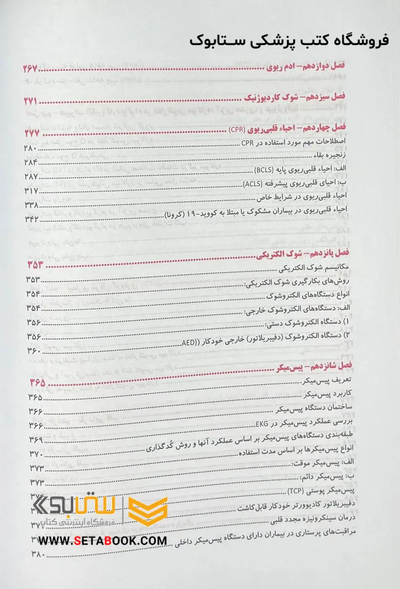 فروشگاه کتب پزشکی ستابوک
فصل دوازدهم- ادم ریوی ۲۶۷
فصل سیزدهم- شوک کاردیوژنیک ۲۷۱
فصل چهاردهم- احیاء قلبی‌ریوی (CPR) ۲۷۷
اصطلاحات مهم مورد استفاده در CPR ۲۸۰
زنجیره بقاء ۲۸۴
الف: احیاء قلبی‌ریوی پایه (BCLS) ۲۸۷
ب: احیای قلبی‌ریوی پیشرفته (ACLS) ۳۱۷
احیاء قلبی‌ریوی در شرایط خاص ۳۳۸
احیاء قلبی‌ریوی در بیماران مشکوک یا مبتلا به کووید-۱۹ (کرونا) ۳۴۲
فصل پانزدهم- شوک الکتریکی ۳۵۳
مکانیسم شوک الکتریکی ۳۵۳
روش‌های بکارگیری شوک الکتریکی: ۳۵۴
انواع دستگاه‌های الکتروشوک ۳۵۴
الف: دستگاه‌های الکتروشوک خارجی: ۳۵۶
۱) دستگاه الکتروشوک دستی: ۳۵۶
۲) دستگاه الکتروشوک (دفیبریلاتور) خارجی خودکار (AED) ۳۶۰
فصل شانزدهم- پیس‌میکر ۳۶۵
تعریف پیس‌میکر ۳۶۵
کاربرد پیس‌میکر ۳۶۶
ساختمان دستگاه پیس‌میکر ۳۶۶
بررسی عملکرد پیس‌میکر در EKG ۳۶۹
طبقه‌بندی دستگاه‌های پیس‌میکر بر اساس عملکرد آنها و روش کُدگذاری ۳۷۰
انواع پیس‌میکرها بر اساس مدت استفاده ۳۷۳
الف: پیس‌میکر موقت: ۳۷۳
ب: پیس‌میکر دائم:
پیس‌میکر پوستی (TCP)
دفیبریلاتور کاديوورتر خودکار قابل‌کاشت
درمان سینکرونیزه مجدد قلبی
مراقبت‌های پرستاری در بیماران دارای دستگاه پیس‌میکر داخلی ۳۸۰
ستابوک
فروشگاه اینترنتی کتاب
WWW.SETABOOK.COM